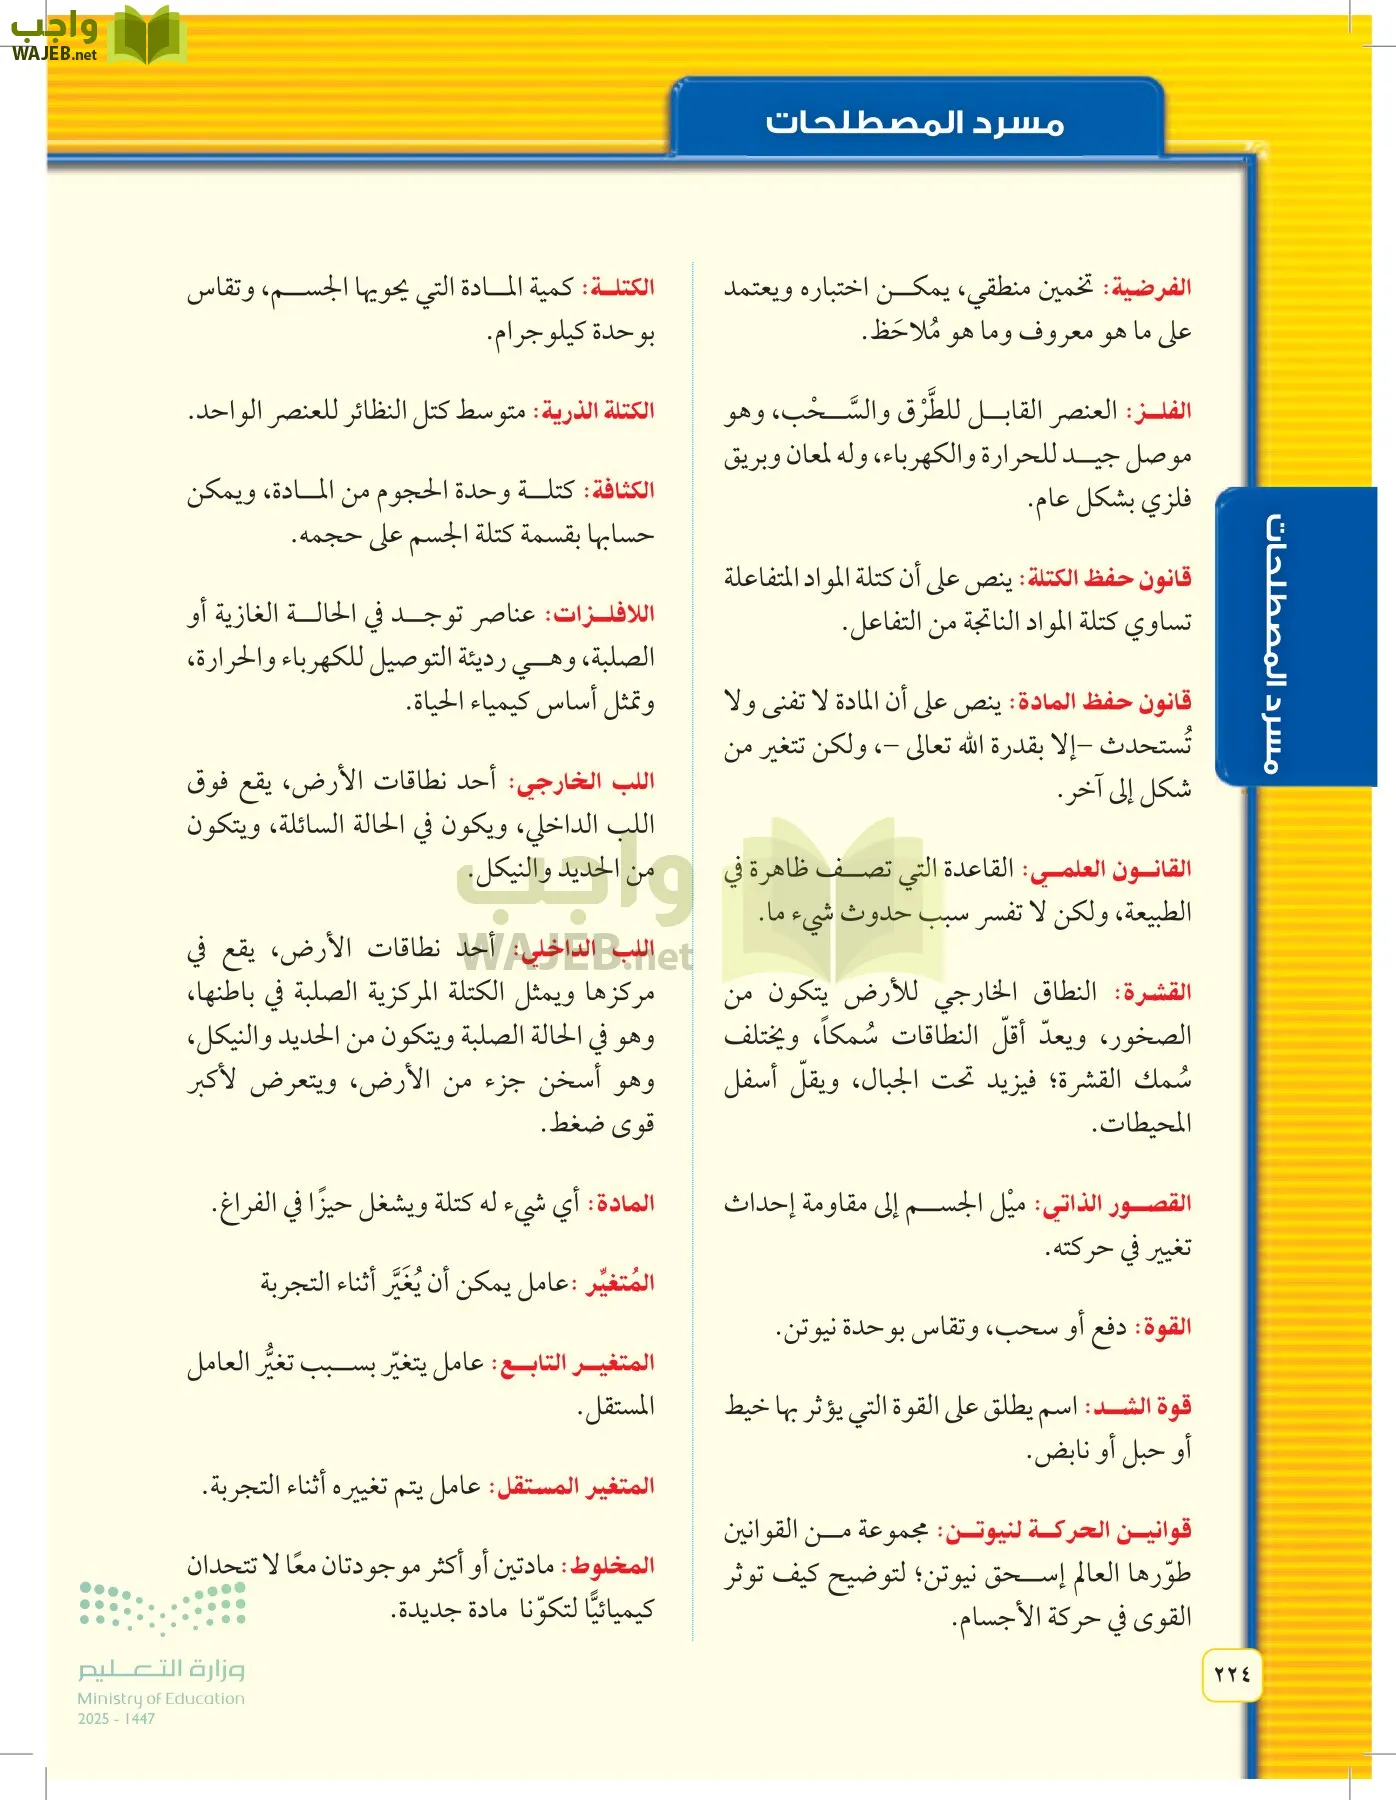 واجب
WAJEB.net
مسرد المصطلحات
الفرضية: تخمين منطقي، يمكن اختباره ويعتمد
على ما هو معروف وما هو مُلاحَظ.
الفلز: العنصر القابل للطَّرْق والسَّحْب، وهو
موصل جيد للحرارة والكهرباء، وله لمعان وبريق
فلزي بشكل عام.
قانون حفظ الكتلة: ينص على أن كتلة المواد المتفاعلة
تساوي كتلة المواد الناتجة من التفاعل.
قانون حفظ المادة: ينص على أن المادة لا تفنى ولا
تُستحدث –إلا بقدرة الله تعالى –، ولكن تتغير من
شكل إلى آخر.
القانون العلمي: القاعدة التي تصف ظاهرة في
الطبيعة، ولكن لا تفسر سبب حدوث شيء ما.
القشرة: النطاق الخارجي للأرض يتكون من
الصخور، ويعدّ أقلّ النطاقات سُمكاً، ويختلف
سُمك القشرة؛ فيزيد تحت الجبال، ويقلّ أسفل
المحيطات.
القصور الذاتي: ميْل الجسم إلى مقاومة إحداث
تغيير في حركته.
القوة: دفع أو سحب، وتقاس بوحدة نيوتن.
قوة الشد: اسم يطلق على القوة التي يؤثر بها خيط
أو حبل أو نابض.
قوانين الحركة لنيوتن: مجموعة من القوانين
طوّرها العالم إسحق نيوتن؛ لتوضيح كيف توثر
القوى في حركة الأجسام.
الكتلة: كمية المادة التي يحويها الجسم، وتقاس
بوحدة كيلوجرام.
الكتلة الذرية: متوسط كتل النظائر للعنصر الواحد.
الكثافة: كتلة وحدة الحجوم من المادة، ويمكن
حسابها بقسمة كتلة الجسم على حجمه.
اللافلزات: عناصر توجد في الحالة الغازية أو
الصلبة، وهي رديئة التوصيل للكهرباء والحرارة،
وتمثل أساس كيمياء الحياة.
اللب الخارجي: أحد نطاقات الأرض، يقع فوق
اللب الداخلي، ويكون في الحالة السائلة، ويتكون
من الحديد والنيكل.
اللب الداخلي: أحد نطاقات الأرض، يقع في
مركزها ويمثل الكتلة المركزية الصلبة في باطنها،
وهو في الحالة الصلبة ويتكون من الحديد والنيكل،
وهو أسخن جزء من الأرض، ويتعرض لأكبر
قوى ضغط.
المادة: أي شيء له كتلة ويشغل حيزًا في الفراغ.
المُتغيِّر :عامل يمكن أن يُغَيَّر أثناء التجربة
المتغير التابع: عامل يتغيّر بسبب تغيُّر العامل
المستقل.
المتغير المستقل: عامل يتم تغييره أثناء التجربة.
المخلوط: مادتين أو أكثر موجودتان معًا لا تتحدان
كيميائيًّا لتكوّنا مادة جديدة.
مسرد المصطلحات
واجب
WAJEB.net
وزارة التعليم
Ministry of Education
2025 - 1447
٢٢٤